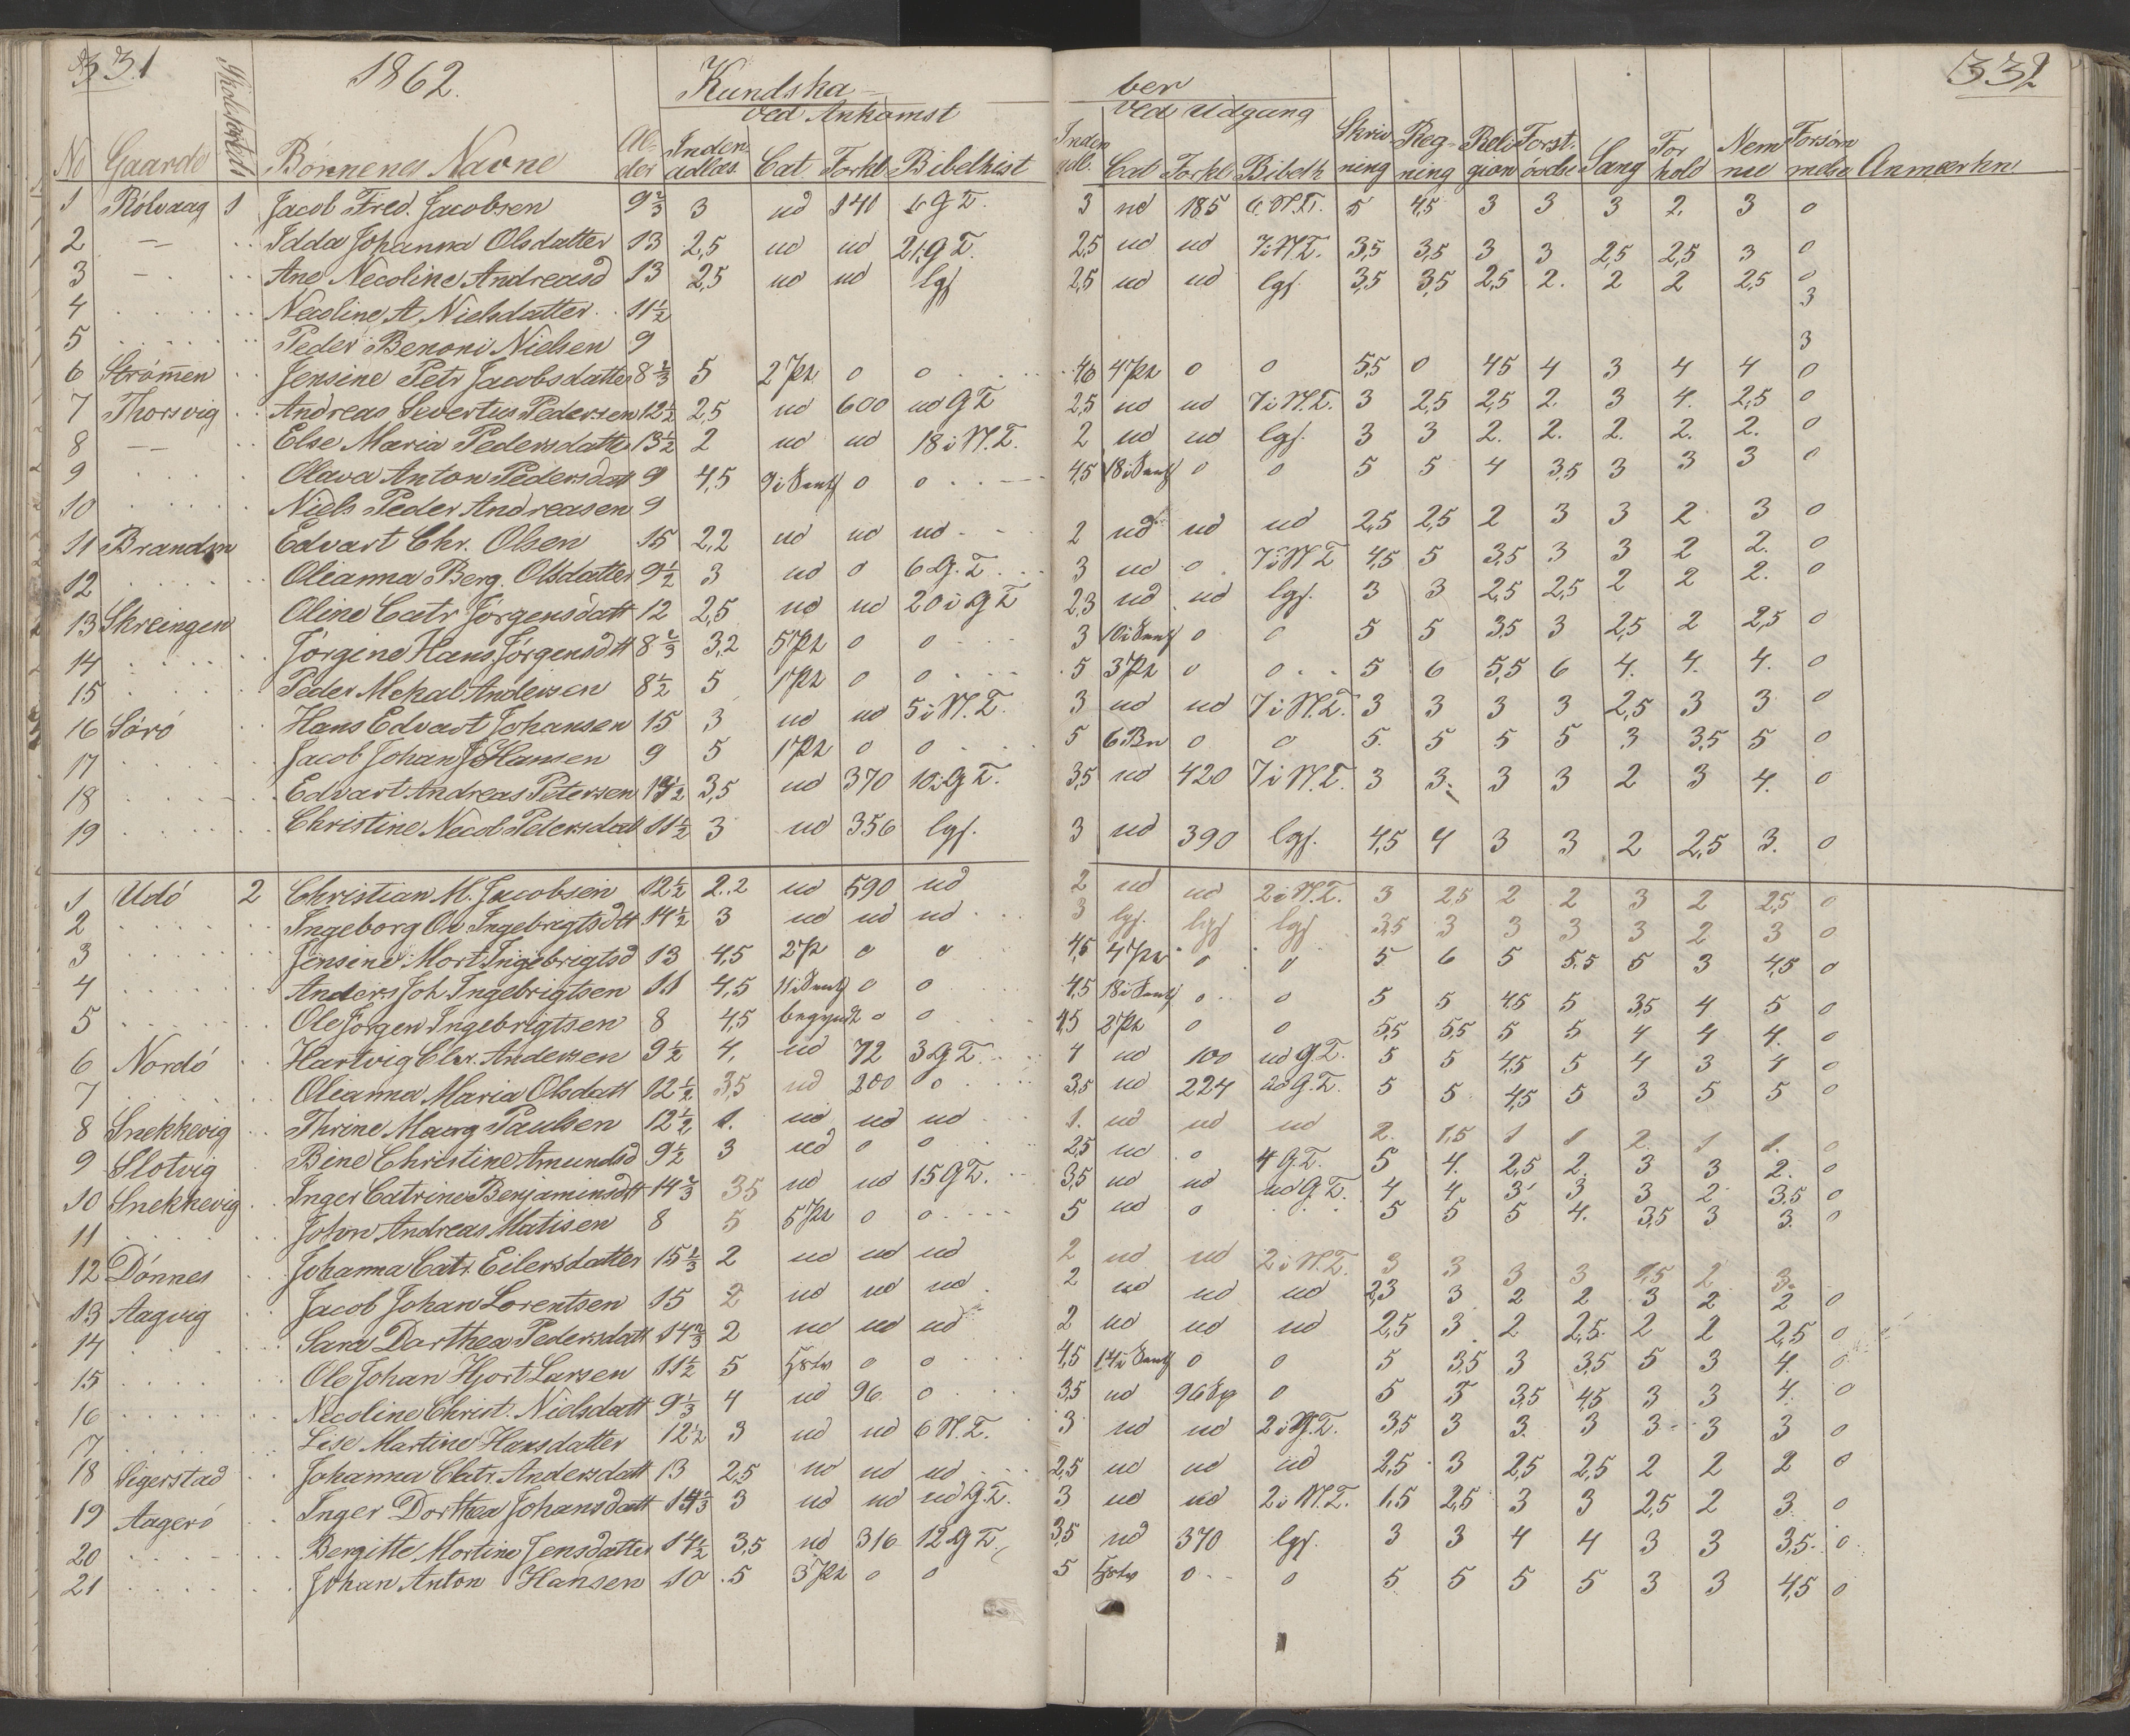 331
1862.
Kundska-
ved Ankomst
No Gaarde Skolekreds Børnenes Navne Alder Indenadlæs. Cat Forkl Bibelhist
1 Rölvaag 1 Jacob Fred. Jacobsen 9 2/3 3 ud 140 6 G T.
2 — Idda Johanna Olsdatter 13 2,5 ud ud 21 G T.
3 — Ane Necoline Andreasd 13 2,5 ud ud lgs
4 Necoline A Nielsdatter 11 1/2
5 Peder Benoni Nielsen 9
6 Strömen Jensine Petr Jacobsdatter 8 2/3 5 2 Pt 0 0
7 Thorsvig Andreas Severtus Pedersen 12 1/2 2,5 ud 600 ud G T
8 — Else Maria Pedersdatter 13 1/2 2 ud ud 18 i N. T.
9 Olava Anton Pedersdatt 9 4,5 9 i Sent 0 0
10 Niels Peder Andreasen 9
11 Brandsn Edvart Chr. Olsen 15 2,2 ud ud ud
12 Olianna Berg. Olsdatter 9 1/2 3 ud 0 6 G. T.
13 Skreingen Oline Catr Jörgensdatt 12 2,5 ud ud 20 i G T
14 Jörgine Hans Jörgensdtt 8 2/3 3,2 5 Pt 0 0
15 Peder Mekal Andersen 8 1/2 5 1 Pt 0 0
16 Sörö Hans Edvart Johansen 15 3 ud ud 5 i N. T.
17 Jacob Johan J Hansen 9 5 1 Pt 0 0
18 Edvart Andreas Petersen 14 1/2 3,5 ud 370 10 i G T.
19 Christine Necol Pedersdatt 11 1/2 3 ud 356 lgs.
1 Udö 2 Christian M. Jacobsen 12 1/2 2.2 ud 590 ud
2 Ingeborg Ol Ingebrigtsdtt 14 1/2 3 ud ud ud
3 Jensine Mort Ingebrigtsd 13 4,5 2 P 0 0
4 Anders Joh Ingebrigtsen 11 4,5 11 i Sent 0 0
5 Ole Jörgen Ingebrigtsen 8 4,5 begyndt 0 0
6 Nordö Hartvig Chr. Andersen 9 1/2 4, ud 72 3 G T.
7 Olianna Maria Olsdatt 12 1/2 3,5 ud 200 0
8 Snekkevig Thrine Marg Paulsen 12 1/2 1. ud ud ud
9 Slotvig Bine Christine Amundsd 9 1/2 3 ud 0 0
10 Snekkevig Inger Catrine Benjaminsdtt 14 2/3 35 ud ud 15 G T.
11 John Andreas Matisen 8 5 5 Pt 0 0
12 Dönnes Johanna Catr. Eilersdatter 15 1/3 2 ud ud ud
13 Aagvig Jacob Johan Lorentsen 15 2 ud ud ud
14 Sara Dorthea Pedersdatt 14 2/3 2 ud ud ud
15 Ole Johan Hjort Larsen 11 1/2 5 0 0
16 Necoline Christ. Nielsdatt 9 1/3 4 ud 96 0
17 Lise Martine Hansdatter 12 1/2 3 ud ud 6 N. T.
18 Sigerstad Johanna Catr. Andersdatt 13 2,5 ud ud ud
19 Aagerö Inger Dorthea Johansdatt 14 1/3 3 ud ud ud G T.
20 Bergitte Martine Jensdatter 14 1/2 3,5 ud 316 12 G T.
21 Johan Anton Hansen 10 5 3 Pt 0 0
332
ber
ved Udgang
Indenadl. Cat Forkl. Bibelh Skrivning Regning Religion Forst. Sang Forhold Nemme Forsömmelse Anmærkn
3 ud 185 6. N. T. 5 4,5 3 3 3 2. 3 0
2,5 ud ud 7 i N. T. 3,5 3,5 3 3 2,5 2,5 3 0
2,5 ud ud lgs. 3,5 3,5 2,5 2. 2 2 2,5 0
3
3
4 Pt 0 0 5,5 0 45 4 3 4 4 0
2,5 ud ud 7 i N. T. 3 2,5 2,5 2. 3 4. 2,5 0
2 ud ud lgs. 3 3 2. 2. 2. 2. 2. 0
4,5 18 i Sent 0 0 5 5 4 3,5 3 3 3 0
2 ud ud ud 2,5 2,5 2 3 3 2 3 0
3 ud 0 7 i N T 4,5 5 3,5 3 3 2 2. 0
2,3 ud ud lgs. 3 3 2,5 2,5 2 2 2. 0
3 10 i Sent 0 0 5 5 3,5 3 2,5 2 2,5 0
5 3 Pt 0 0 5 6 5,5 6 4. 4. 4. 0
3 ud ud 7 i N. T. 3 3 3 3 2,5 3 3 0
5 6 Bn 0 0 5. 5 5 5 3 3,5 5 0
3,5 ud 420 7 i N. T. 3 3. 3 3 2 3 4. 0
3 ud 390 lgs. 4,5 4 3 3 2 2,5 3. 0
2 ud ud 2 i N. T. 3 2,5 2 2 3 2 2,5 0
3 lgs. lgs lgs 3,5 3 3 3 3 2 3 0
4,5 4 Pt 0 0 5 6 5 5.5 5 3 4,5 0
4,5 18 i Sent 0 0 5 5 4,5 5 3,5 4 5 0
4,5 2 Pt 0 0 5,5 5,5 5 5 4 4 4. 0
4 ud 100 ud G. T. 5 5 4,5 5 4 3 4 0
3,5 ud 224 ud G. T. 5 5 4,5 5 3 5 5 0
1. ud ud ud 2. 1,5 1 1 2. 1 1. 0
2,5 ud 0 4 G. T. 5 4. 2,5 2. 3 3 2. 0
3,5 ud ud ud G. T. 4 4 3 3 3 2 3.5 0
5 ud 0 5 5 5 4. 3,5 3 3. 0
2 ud ud 2 i N. T. 3 3 3 3 1,5 2 3.
2 ud ud ud 2,3 3 2 2 3 2 2 0
2 ud ud ud 2,5 3 2 2,5. 2 2 2,5 0
4,5 14 i Sent 0 0 5 3,5 3 3,5 5 3 4. 0
3,5 ud 96 0 5 5 3,5 4,5 3 3 4. 0
3 ud ud 2 i G. T. 3,5 3 3. 3 3 3 3 0
2,5 ud ud ud 2,5 3 2,5 2,5 2 2 2 0
3 ud ud 2 i N. T. 1,5 2,5 3 3 2,5 2 3. 0
3,5 ud 370 lgs. 3 3 4 4 3 3 3,5. 0
5 0 0 5 5 5 5 3 3 4,5 0